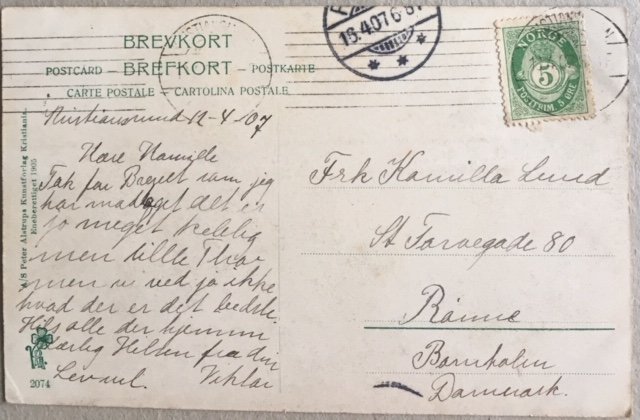 BREVKORT
POSTCARD — BREFKORT — POSTKARTE
CARTE POSTALE — CARTOLINA POSTALE
13.4.07 6
NORGE
5
POSTFRIM. 5 ØRE
Kristianssund 12-4-07
Kære Kamille
Tak for Brevet som jeg
har modtaget det er
jo meget kedelig
men lille Thor
men vi ved jo ikke
hvad der er det bedste
Hils alle der hjemme
Kærlig Hilsen fra din
Viktor
Frk Kamilla Lund
St Torvegade 80
Rönne
Bornholm
Danmark.
A/S Peter Alstrups Kunstforlag Kristiania.
Eneberettiget 1905
2074